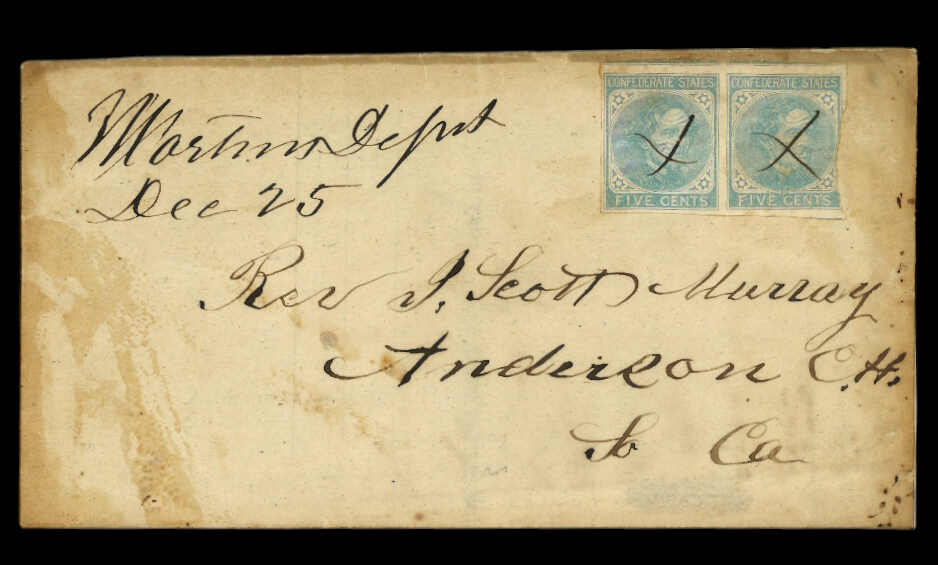 CONFEDERATE STATES CONFEDERATE STATES
FIVE CENTS FIVE CENTS
Martins Depot
Dec 25
Rev J. Scott Murray
Anderson C.H.
So Ca